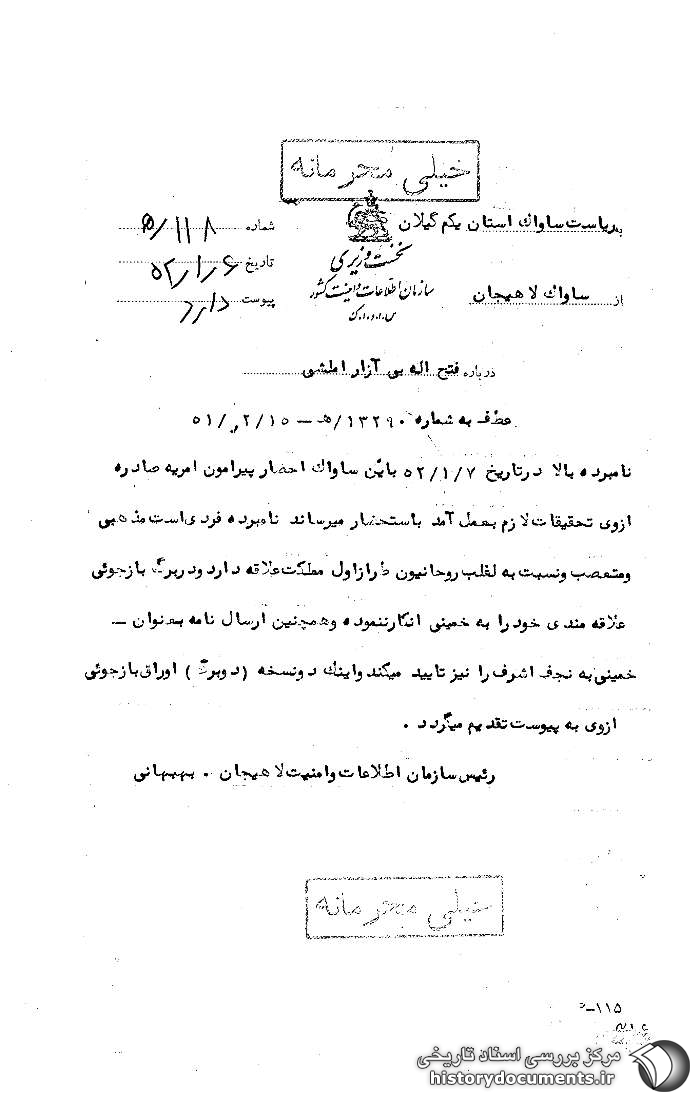 خیلی محرمانه
بریاست ساواک استان یکم گیلان
شماره ۵/۱۱۸
نخست وزیری
تاریخ ۵۲/۱/۶
سازمان اطلاعات وامنیت کشور
از ساواک لاهیجان
پیوست دارد
س.ا.و.ا.ک
درباره فتح اله بی آزار املشی
عطف به شماره ۱۳۲۹۰/هـ – ۵۱/۲/۱۵
نامبرده بالا درتاریخ ۵۲/۱/۷ باین ساواک احضار پیرامون امریه صادره
ازوی تحقیقات لازم بعمل آمد باستحضار میرساند نامبرده فردی است مذهبی
ومتعصب ونسبت به لغلب روحانیون طرازاول مملکت علاقه دارد ودربرگ بازجوئی
علاقه مندی خود را به خمینی انکارننموده وهمچنین ارسال نامه بعنوان –
خمینی به نجف اشرف را نیز تایید میکند واینک دونسخه (دوبرگ) اوراق بازجوئی
ازوی به پیوست تقدیم میگردد .
رئیس سازمان اطلاعات وامنیت لاهیجان . بهبهانی
خیلی محرمانه
۱۱۵–
مرکز بررسی اسناد تاریخی
historydocuments.ir